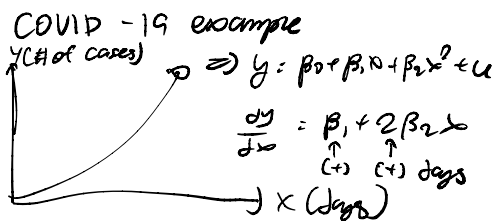 COVID-19 example
Y(# of cases)
⇒ y = β0 + β1x + β2x² + u
dy/dx = β1 + 2β2x
↑ ↑
(+) (+) days
x (days)